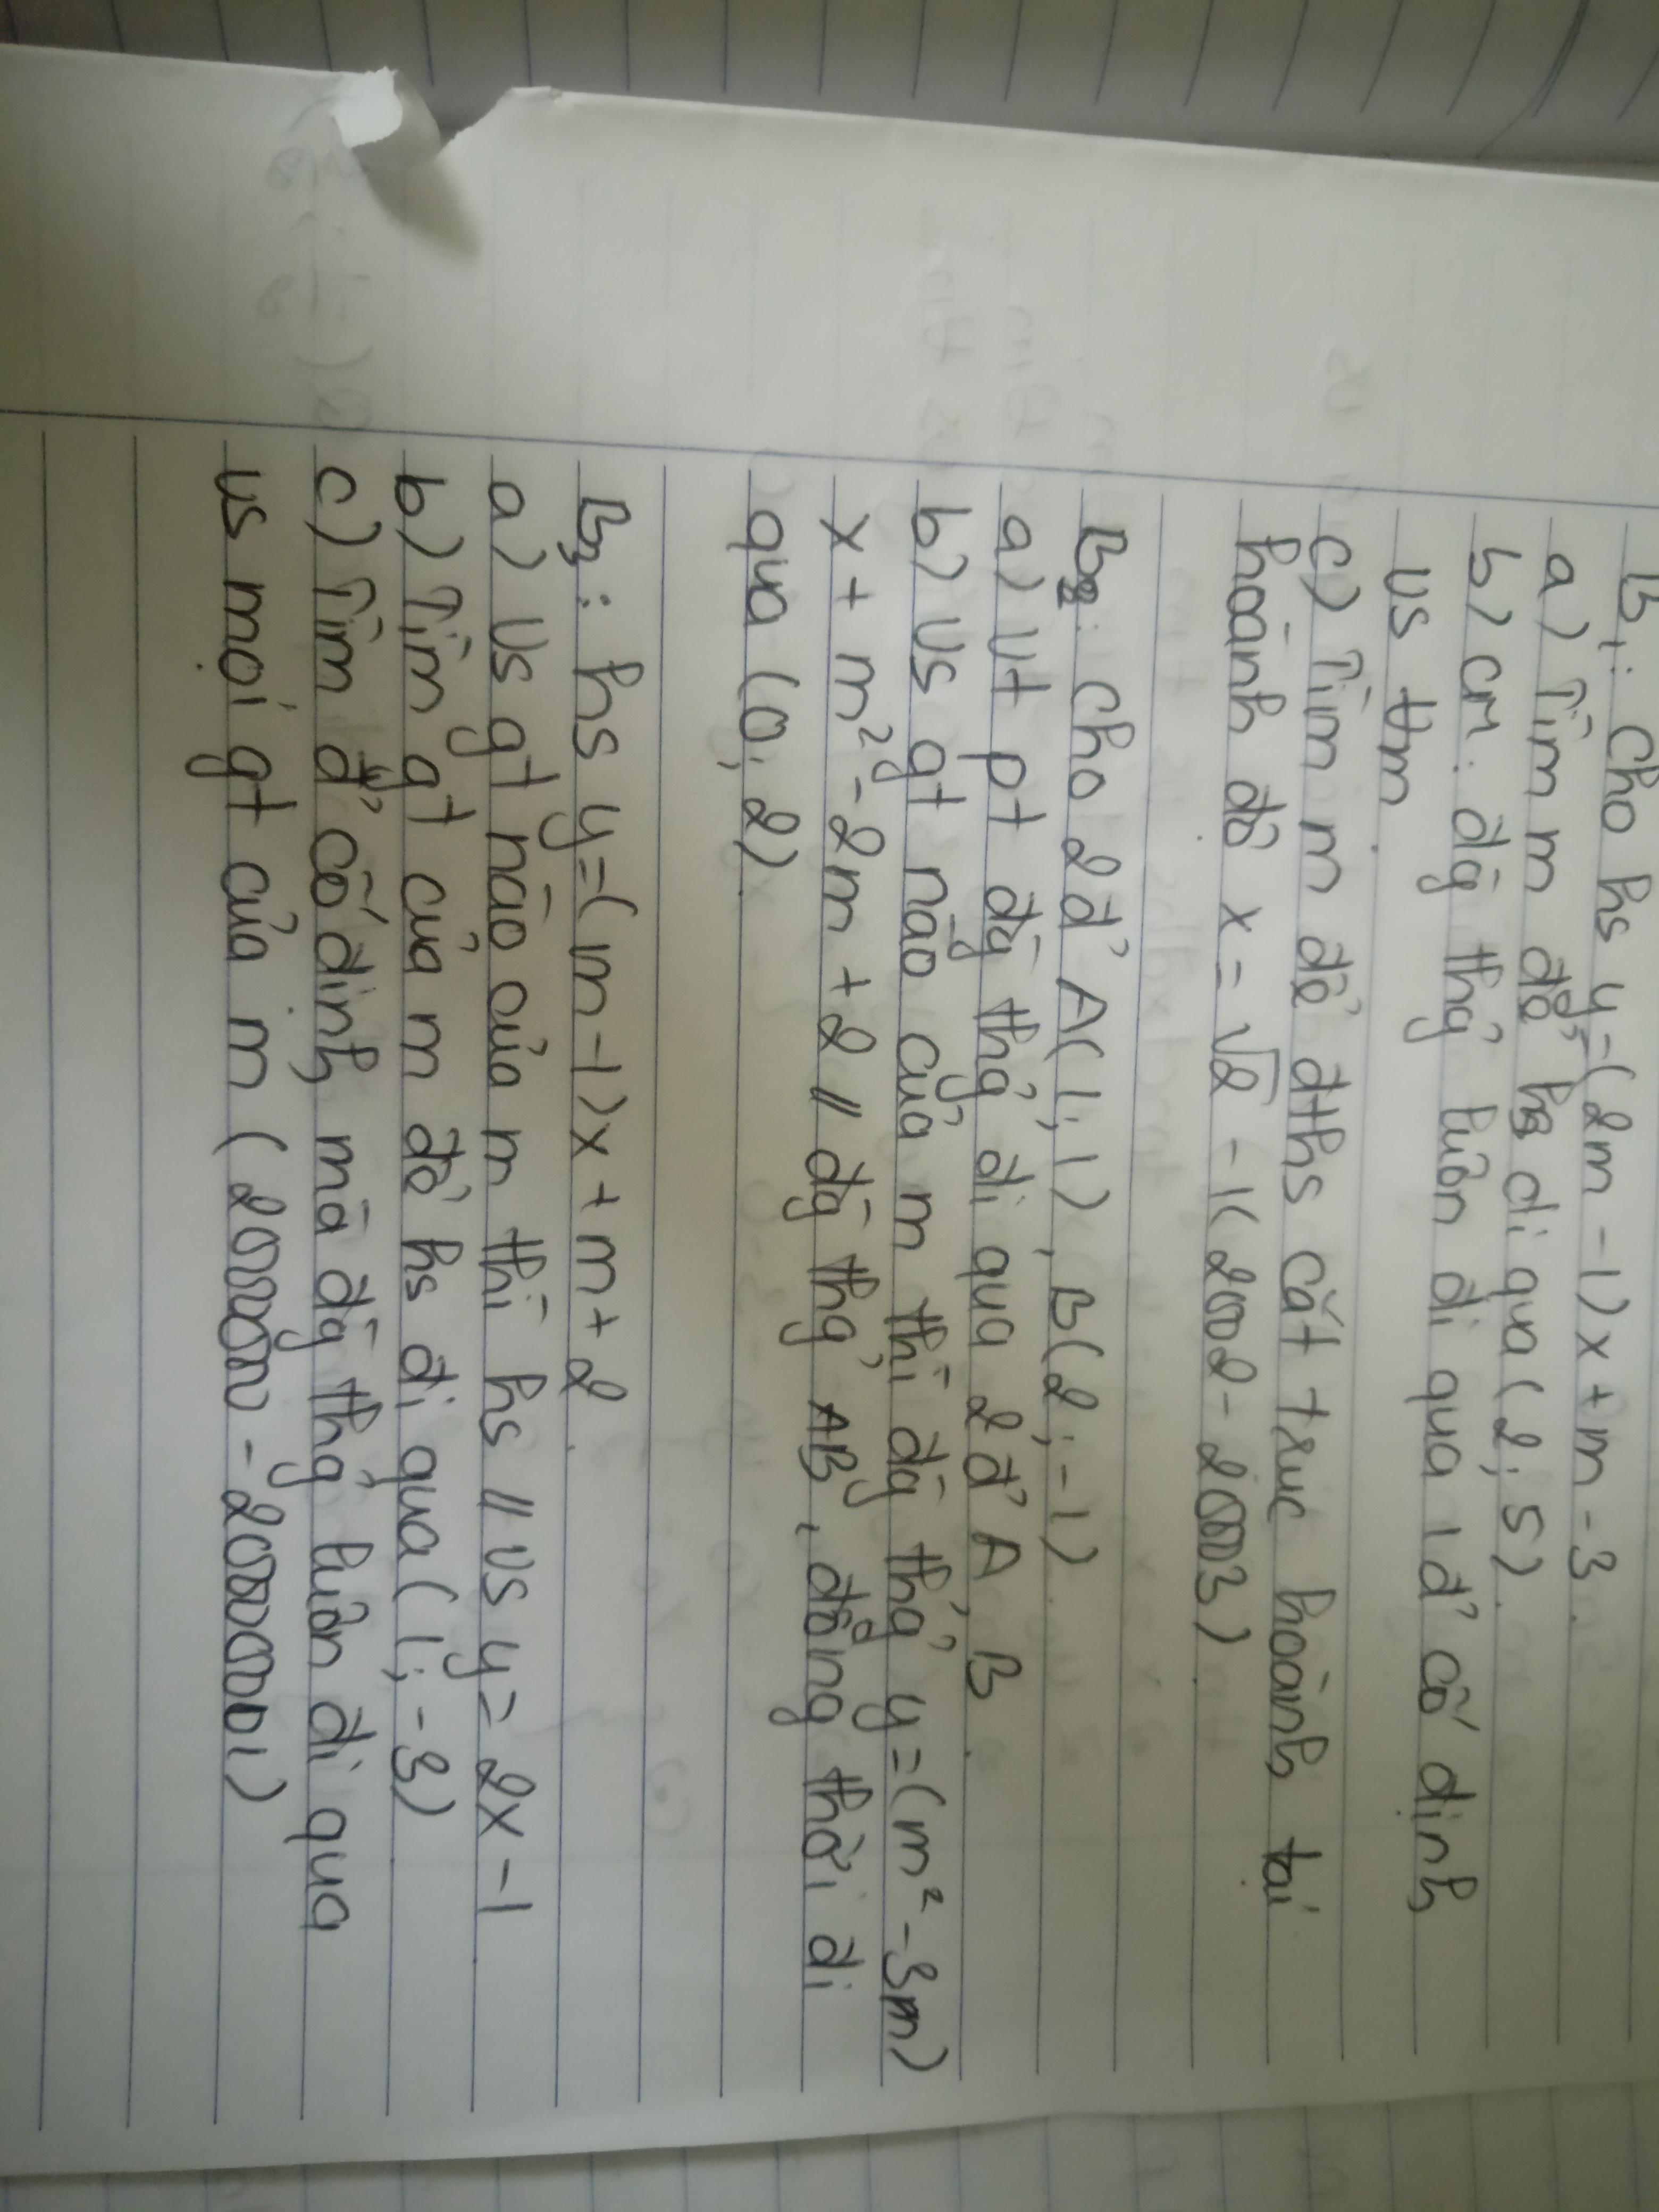 B₁: Cho hs y=(2m-1)x+m-3
a) Tìm m để hs đi qua (2; 5)
b) CM: đg thg luôn đi qua 1 đ' cố định
vs ∀m
c) Tìm m để đths cắt trục hoành tại
hoành độ x = √2 - 1 (2002 - 2003)
B₂: Cho 2 đ' A(1; 1), B(2; -1)
a) Vt pt đg thg đi qua 2 đ' A, B
b) Vs gt nào của m thì đg thg y=(m²-3m)
x + m² - 2m + 2 // đg thg AB, đồng thời đi
qua (0; 2)
B₃: hs y=(m-1)x+m+2
a) Vs gt nào của m thì hs // vs y = 2x-1
b) Tìm gt của m để hs đi qua (1; -3)
c) Tìm đ' cố định mà đg thg luôn đi qua
vs mọi gt của m